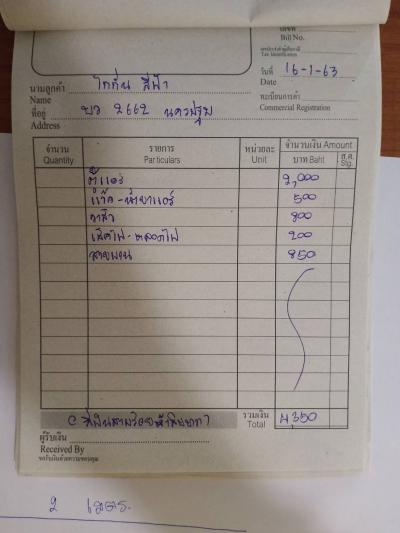 เลขที่
Bill No.
เลขประจำตัวผู้เสียภาษี
Tax Identification
วันที่ 16-1-63
Date
นามลูกค้า ไกกั่น สีฟ้า
Name
ทะเบียนการค้า
Commercial Registration
ที่อยู่ บว 2662 นครปฐม
Address
จำนวน รายการ หน่วยละ จำนวนเงิน Amount
Quantity Particulars Unit บาท Baht ส.ต. Stg.
ตู้แอร์ 2,000
แว๊ค-น้ำยาแอร์ 500
800
เช็คไฟ-หลอดไฟ 200
สายพาน 850
(สี่พันสามร้อยห้าสิบบาท) รวมเงิน 4,350
Total
ผู้รับเงิน
Received By
2